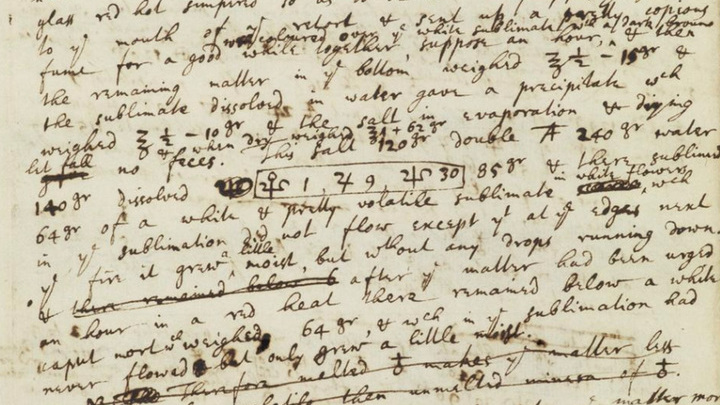 glass red hot
to yᵉ mouth of yᵉ retort & sent up a pretty copious
fume for a good while together, suppose an hour, & then
was coloured over yᵉ white sublimate with a dark brown
the remaining matter in yᵉ bottom weighed ℥ ½ - 15gr &
the sublimate dissolved in water gave a precipitate wch
weighed ℥ ½ - 10gr & the salt in evaporation & drying
& when dry weighed + 62gr
let fall no feces. This salt 120gr double 240gr water
140gr dissolved 1, ♃ 9, 30 85gr & there sublimed
64gr of a white & pretty volatile sublimate in white flowers, wch
in yᵉ sublimation did not flow except yᵗ at yᵉ edges next
yᵉ fire it grew a little moist, but without any drops running down.
& there remained below 6 after yᵉ matter had been urged
an hour in a red heat there remained below a white
caput mort wch weighed 64gr, & wch in yᵉ sublimation had
never flowed but only grew a little moist.
Therefore melted ♁ makes yᵉ matter less
then unmelted minera of ♁.
matter mor